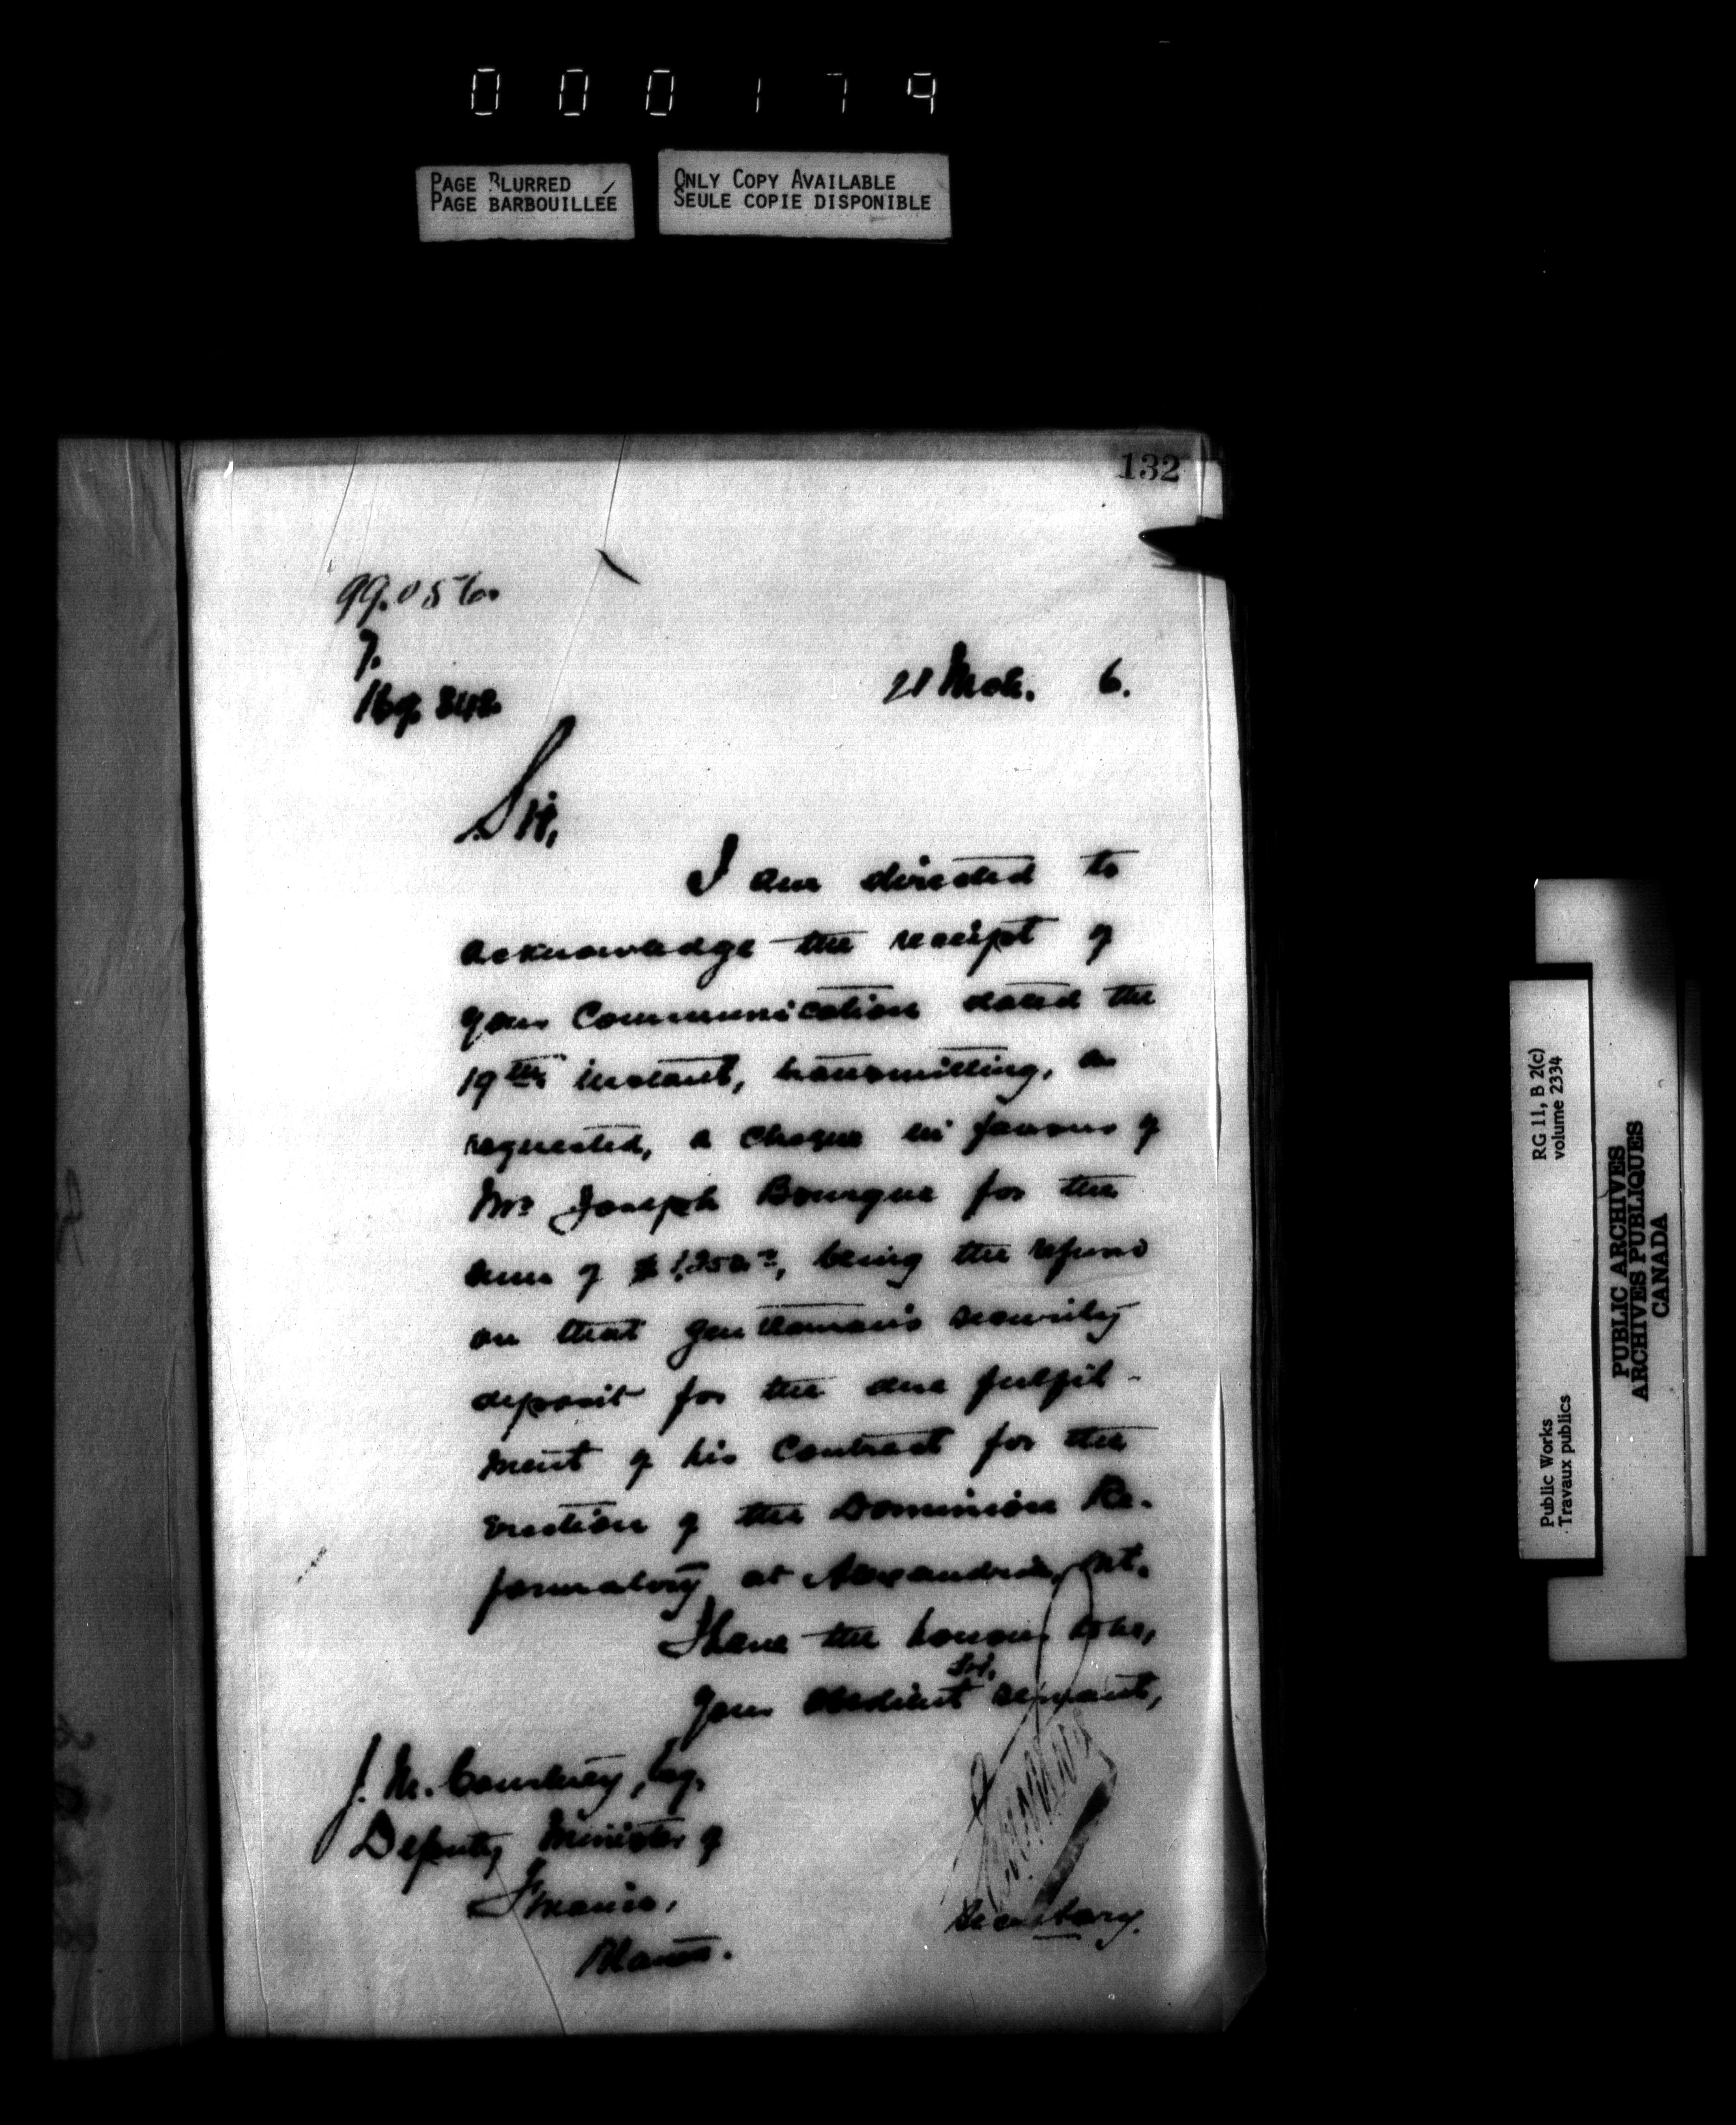 000179
PAGE BLURRED
PAGE BARBOUILLÉE
ONLY COPY AVAILABLE
SEULE COPIE DISPONIBLE
132
99.056.
7.
21 Mch. 6.
Sir,
I am directed to
acknowledge the receipt of
your Communication dated the
19th instant, transmitting, as
requested, a cheque in favour of
Mr Joseph Bourque for the
sum of being the refund
on that gentleman's security
deposit for the due fulfil-
ment of his Contract for the
erection of the Dominion Re-
formatory at Alexandria, Ont.
I have the honour to be,
Sir,
Your obedient servant,
J. M. Courtney, Esq.
Deputy Minister of
Finance,
Secretary.
RG 11, B 2(c)
volume 2334
Public Works
Travaux publics
PUBLIC ARCHIVES
ARCHIVES PUBLIQUES
CANADA